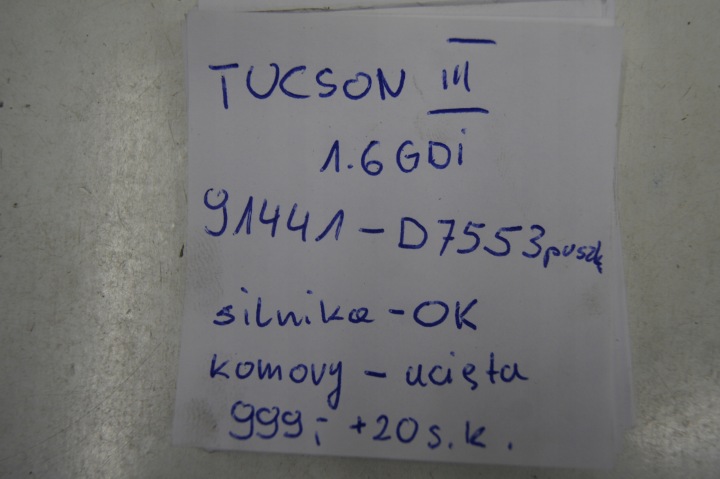 TUCSON III
1.6 GDI
91441-D7553 puszk
silnika - OK
komory - ucięta
999,- +20 s.k.